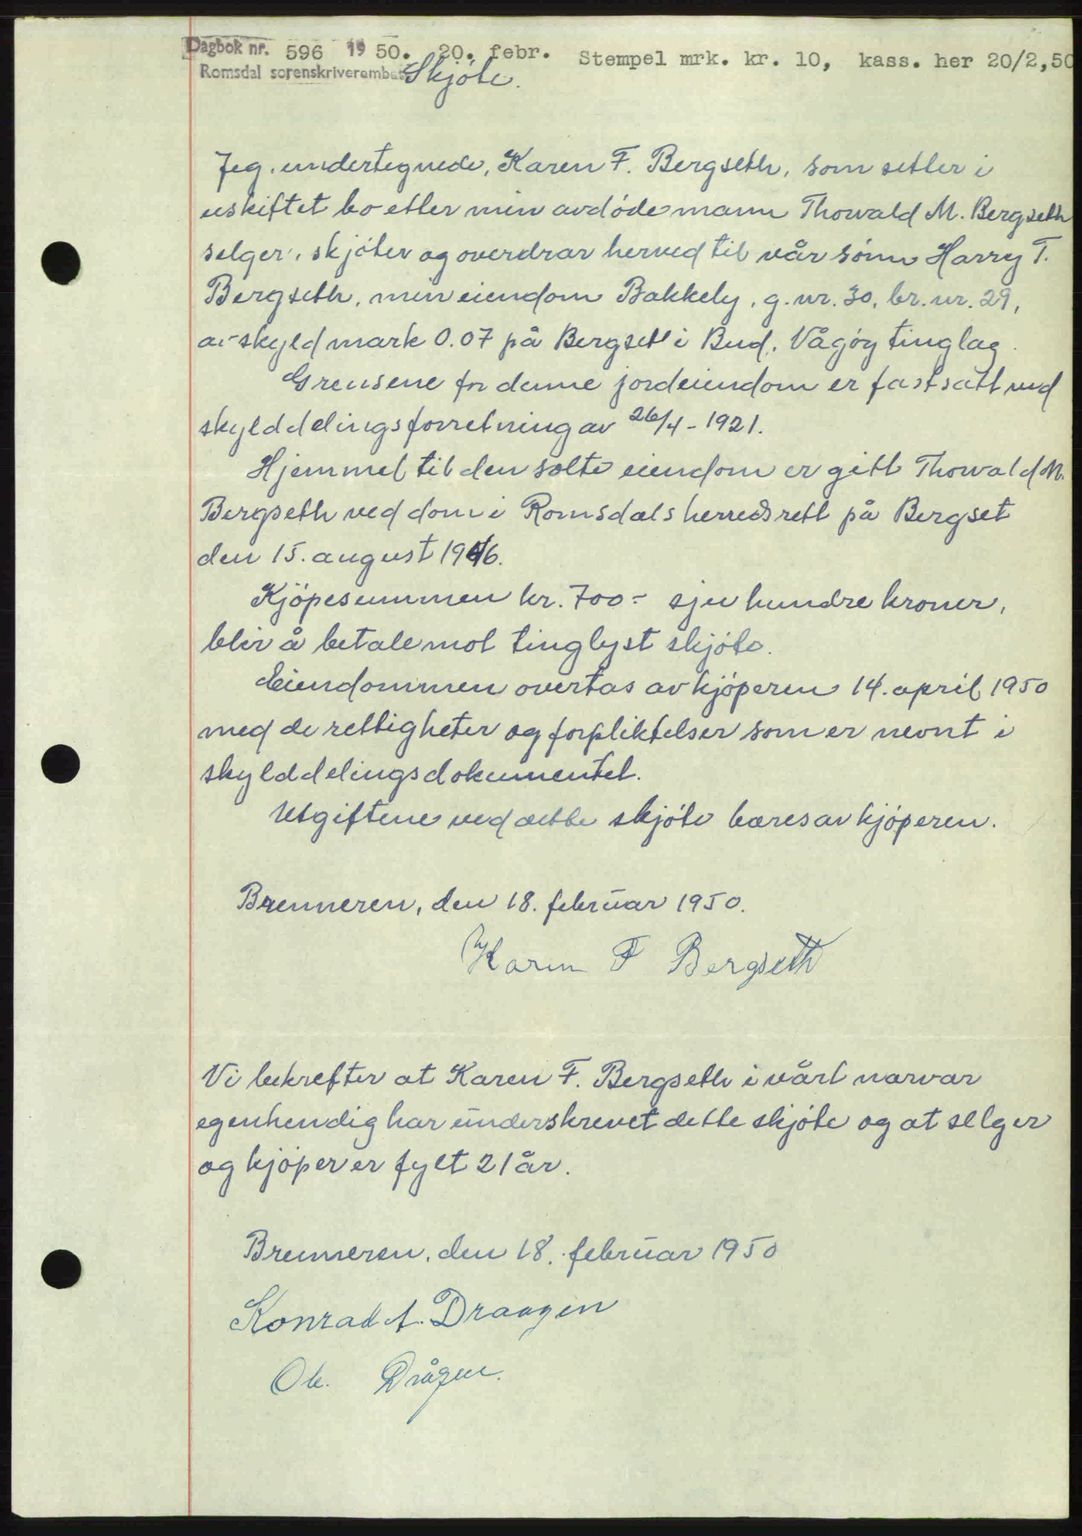 Dagbok nr. 596 19 50. 20. febr. Stempel mrk. kr. 10, kass. her 20/2,50
Romsdal sorenskriverembe
Skjöte.
Jeg, undertegnede, Karen F. Bergseth, som sitter i
uskiftet bo etter min avdöde mann Thorvald M. Bergseth
selger, skjöter og overdrar herved til vår sönn Harry T.
Bergseth, min eiendom Bakkely, g.nr. 30, br.nr. 29,
av skyld mark 0.07 på Bergset i Bud, Vågöy tinglag.
Grensene for denne jordeiendom er fastsatt ved
skylddelingsforretning av 26/4 - 1921.
Hjemmel til den solte eiendom er gitt Thorvald M.
Bergseth ved dom i Romsdals herredsrett på Bergset
den 15. august 1946.
Kjöpesummen kr. 700- sju hundre kroner,
blir å betale mot tinglyst skjöte.
Eiendommen overtas av kjöperen 14. april 1950
med de rettigheter og forpliktelser som er nevnt i
skylddelingsdokumentet.
Utgiftene ved dette skjöte bæres av kjöperen.
Brenneren, den 18. februar 1950.
Karen F Bergseth
Vi bekrefter at Karen F. Bergseth i vårt nærvær
egenhendig har underskrevet dette skjöte og at selger
og kjöper er fylt 21 år.
Brenneren, den 18. februar 1950
Konrad A. Draagen
Ole. Drågen.